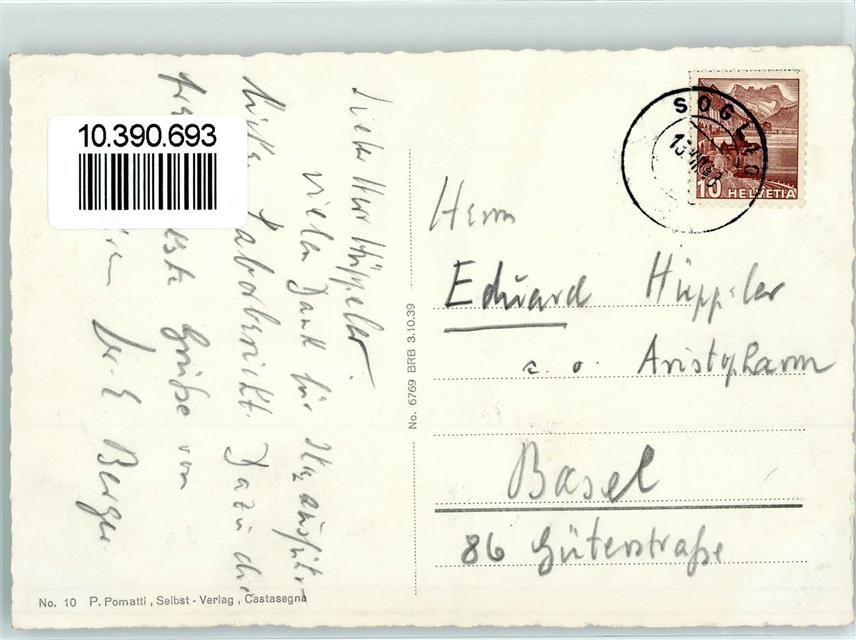 10.390.693
Lieber Herr Hüppeler.
vielen Dank für Ihr ausführ-
Laborbericht. Dazu die
Grüße von
Dr. E. Berger
No. 6769 BRB 3.10.39
SOGLIO
10 HELVETIA
Herrn
Eduard Hüppeler
a. o. Aristopharm
Basel
86 Güterstraße
No. 10 P. Pomatti, Selbst - Verlag, Castasegna